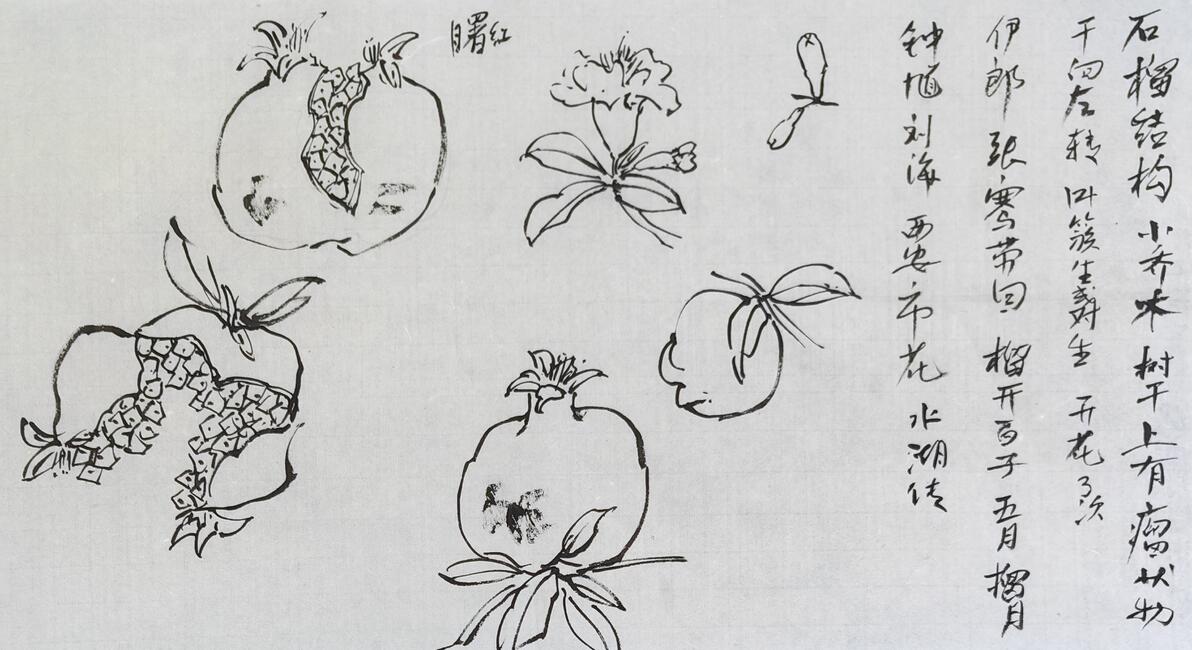 石榴结构 小乔木 树干上有瘤状物
干向左转 叶簇生对生 开花3次
伊郎 张骞带回 榴开百子 五月榴月
钟馗 刘海 西安市花 水浒传
曙红